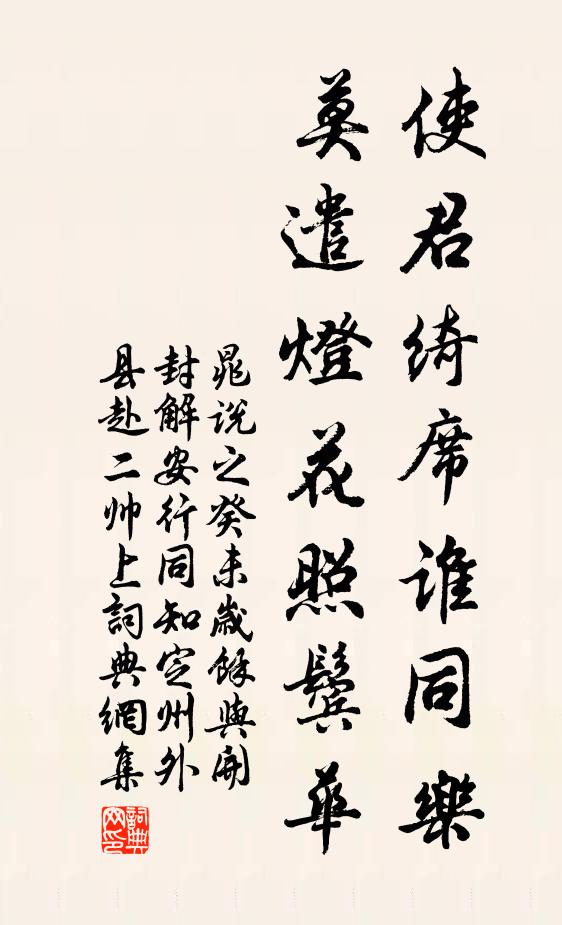 使君绮席谁同樂
莫遣燈花照鬓華
晁说之癸未歲餘與開
封解安行同知定州外
县赴二帅上詞典網集
詞典网印